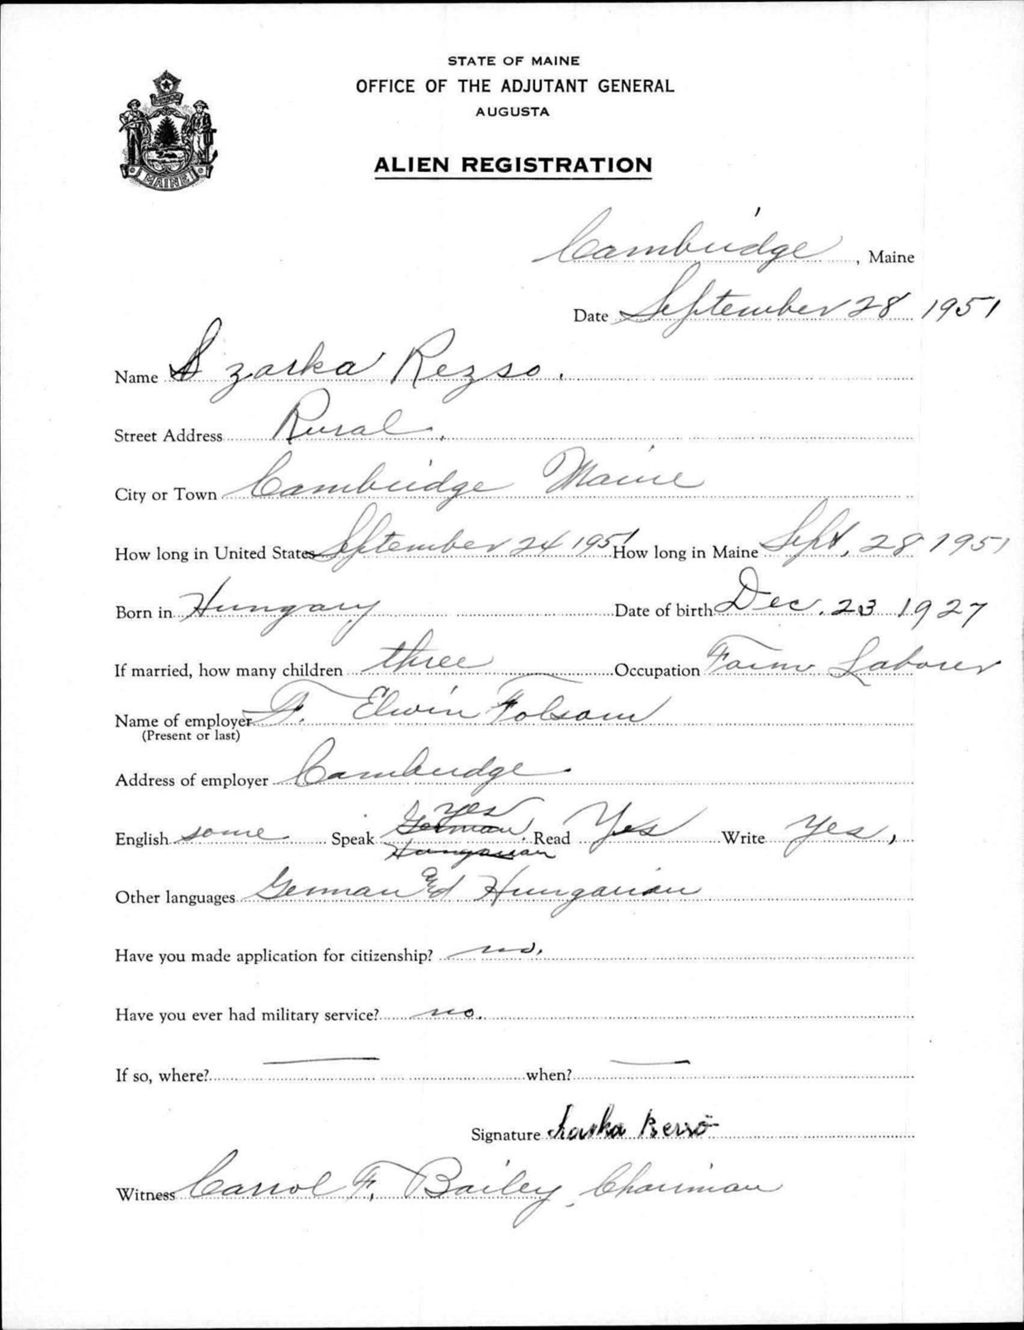 STATE OF MAINE
OFFICE OF THE ADJUTANT GENERAL
AUGUSTA
ALIEN REGISTRATION
MAINE
Cambridge, Maine
Date September 28 1951
Name Szarka Rezso.
Street Address Rural.
City or Town Cambridge Maine
How long in United States September 24 1951 How long in Maine Sept, 28 1951
Born in Hungary Date of birth Dec. 23 1927
If married, how many children three Occupation Farm Laborer
Name of employer F. Elwin Folsom
(Present or last)
Address of employer Cambridge.
yes
English some Speak German Read Yes Write yes,
Hungarian
Other languages German and Hungarian
Have you made application for citizenship? no.
Have you ever had military service? no.
If so, where? — when? —
Signature
Witness Carrol F. Bailey, Chairman